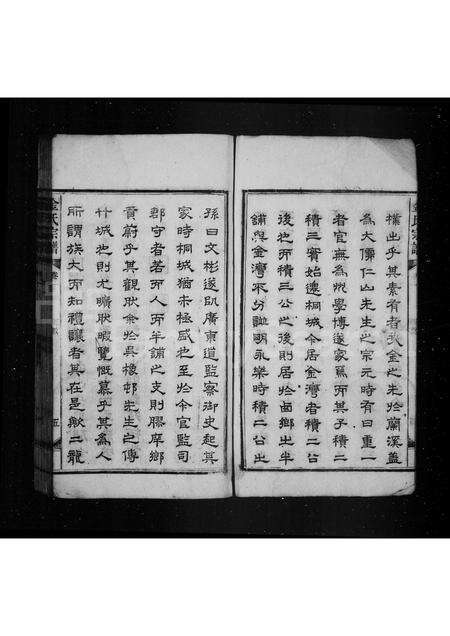 樸出乎其素有者哉金之先於蘭溪蓋
為大儒仁山先生之宗元時有曰重一
者官無為州學博遂家焉而其子積二
積三實始遷桐城今居金灣者積二公
後也而積三公之後則居於鹵鄉出半
鋪與金灣不分訕明永樂時積二公出
孫曰文彬遂臥廣東道監察御史起其
家時桐城猶未極盛也之至於今官監司
郡守者若而人而半鋪之支則膠庠鄉
貢蔚乎其觀狀余於吳橡邨先生之傳
竹城也則尤曠狀暇覽慨慕乎其為人
所謂族大而知禮讓者其在是歟二龍
金氏宗譜
卷
五